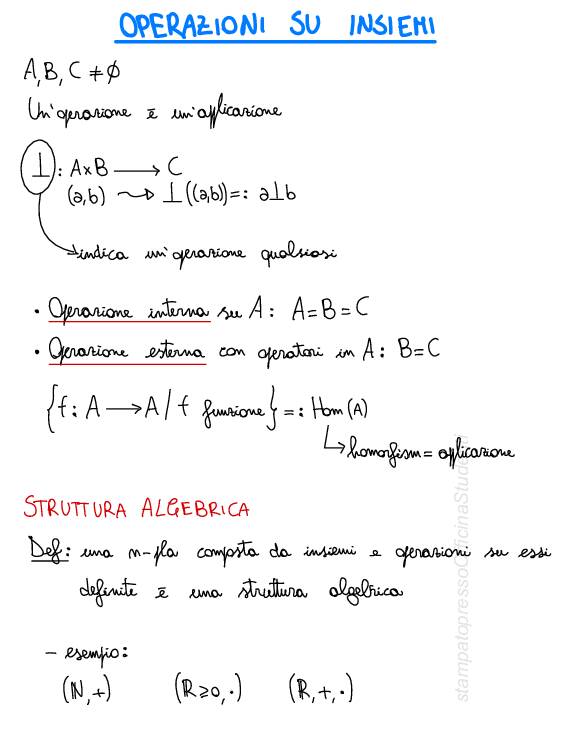 OPERAZIONI SU INSIEMI
A, B, C ≠ ∅
Un'operazione è un'applicazione
⊥ : A×B ⟶ C
(a,b) ⤳ ⊥((a,b)) =: a⊥b
indica un'operazione qualsiasi
• Operazione interna su A: A=B=C
• Operazione esterna con operatori in A: B=C
{f: A ⟶ A / f funzione} =: Hom(A)
↳ homorfism = applicazione
STRUTTURA ALGEBRICA
Def: una n-pla composta da insiemi e operazioni su essi
definite è una struttura algebrica
- esempio:
(ℕ,+) (ℝ≥0,·) (ℝ,+,·)
stampatopressoOfficinaStudenti